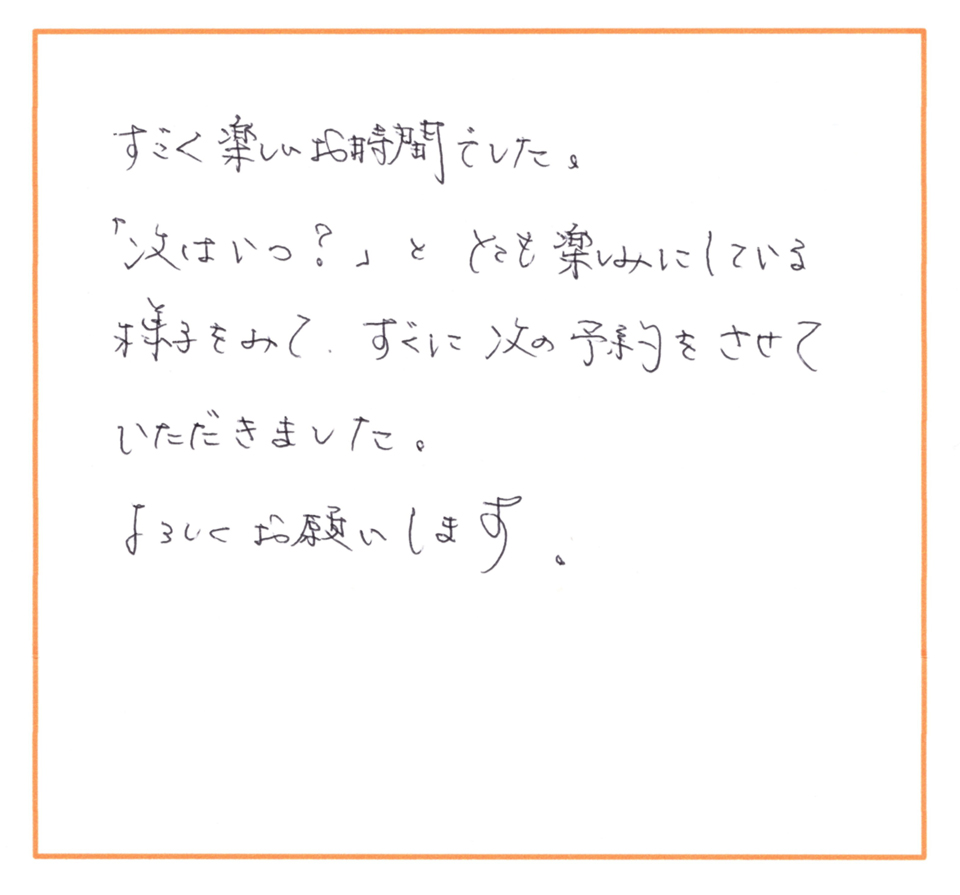 すごく楽しいお時間でした。
「次はいつ？」と とても楽しみにしている
様子をみて、すぐに次の予約をさせて
いただきました。
よろしくお願いします。